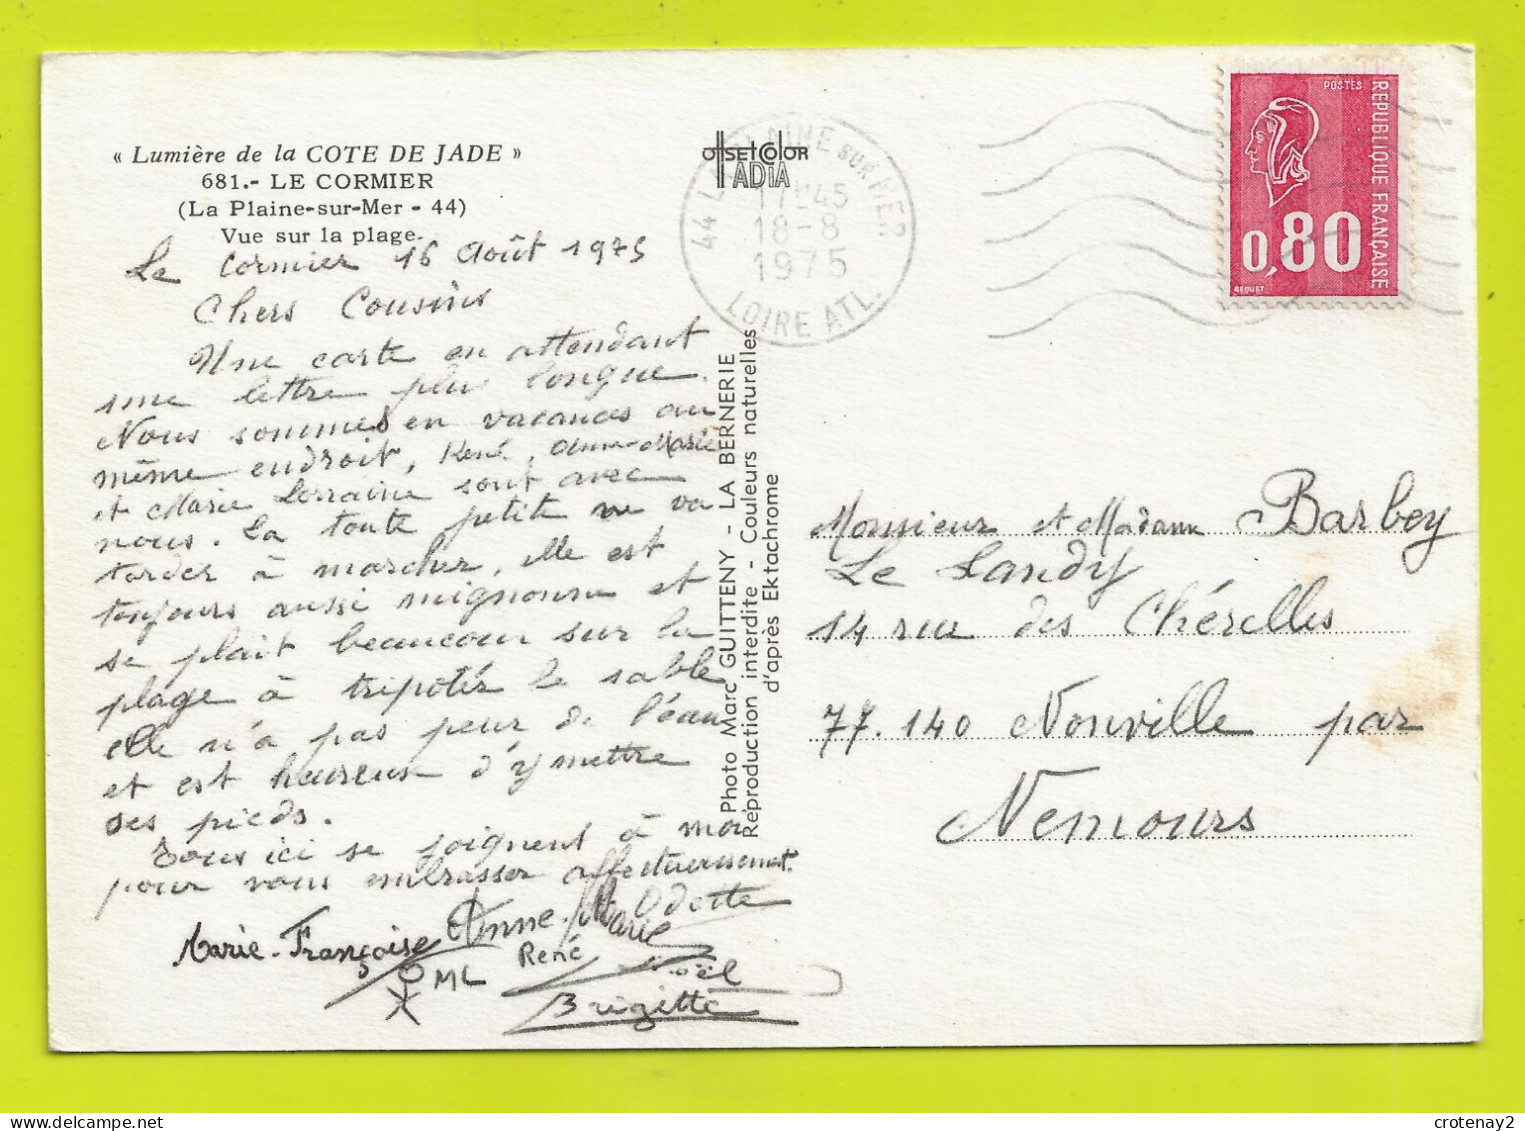 « Lumière de la COTE DE JADE »
681.- LE CORMIER
(La Plaine-sur-Mer - 44)
Vue sur la plage.
Le Cormier 16 Août 1975
Chers Cousins
Une carte en attendant
une lettre plus longue.
Nous sommes en vacances au
même endroit, René, Anne-Marie
et Marie Lorraine sont avec
nous. La toute petite ne va
tarder à marcher, elle est
toujours aussi mignonne et
se plait beaucoup sur la
plage à tripoter le sable
elle n'a pas peur de l'eau
et est heureuse d'y mettre
ses pieds.
Tous ici se joignent à moi
pour vous embrasser affectueusement.
Odette
Marie-Françoise Anne-Marie
ML René Noël
Brigitte
offset Color
ADIA
44 LA PLAINE SUR MER
17H45
18-8
1975
LOIRE ATL.
Photo Marc GUITTENY - LA BERNERIE
Reproduction interdite - Couleurs naturelles
d'après Ektachrome
POSTES
REPUBLIQUE FRANÇAISE
0,80
BEQUET
Monsieur et Madame Barbey
Le Landy
14 rue des Chérelles
77.140 Nonville par
Nemours
crotenay2